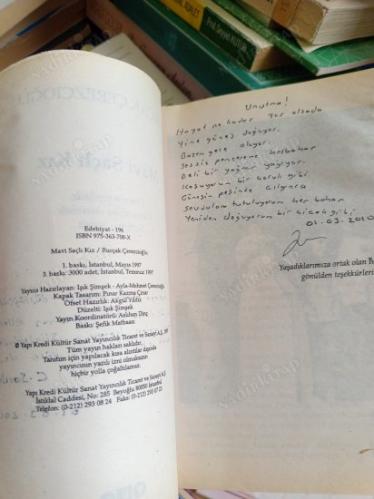 Edebiyat - 196
ISBN 975-363-798-X
Mavi Saçlı Kız / Burçak Çerezcioğlu
1. baskı, İstanbul, Mayıs 1997
3. baskı: 3000 adet, İstanbul, Temmuz 1997
Yayına Hazırlayan: Işık Şimşek - Ayla-Mehmet Çerezcioğlu
Kapak Tasarım: Pınar Kazma Çınar
Ofset Hazırlık: Akgül Yıldız
Düzelti: Işık Şimşek
Yayın Koordinatörü: Aslıhan Dinç
Baskı: Şefik Matbaası
© Yapı Kredi Kültür Sanat Yayıncılık Ticaret ve Sanayi A.Ş.
Tüm yayın hakları saklıdır.
Tanıtım için yapılacak kısa alıntılar dışında
yayıncının yazılı izni olmaksızın
hiçbir yolla çoğaltılamaz.
Yapı Kredi Kültür Sanat Yayıncılık Ticaret ve Sanayi A.Ş.
İstiklal Caddesi, No: 285 Beyoğlu 80050 İstanbul
Telefon: (0-212) 293 08 24
Unutma!
Hayat ne kadar zor olsada
Yine güneş doğuyor.
Bazen gece oluyor
Sessiz pencerene
Deli bir yağmur yağıyor.
bir çocuk gibi
Güneşin peşinde çılgınca
Sevdalım tutuluyorum her bahar
Yeniden doğuyorum bir çiçek gibi
01.03.2010
Yaşadıklarımıza ortak olan
gönülden teşekkürler